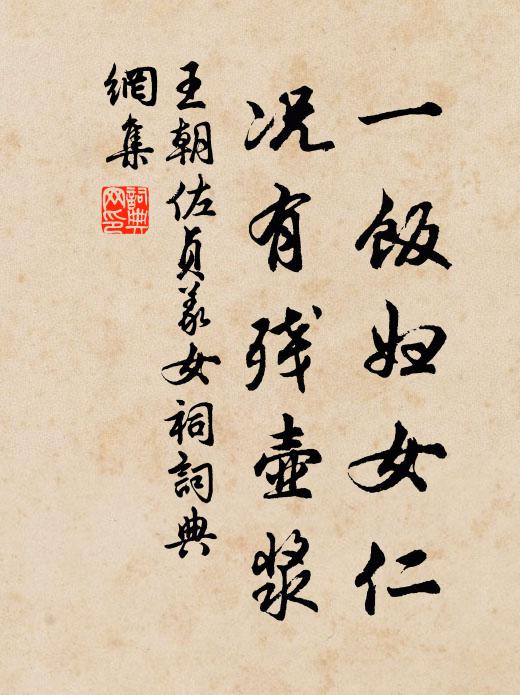 一飯妇女仁
况有残壺漿
王朝佐貞義女祠詞典
網集
詞典網印